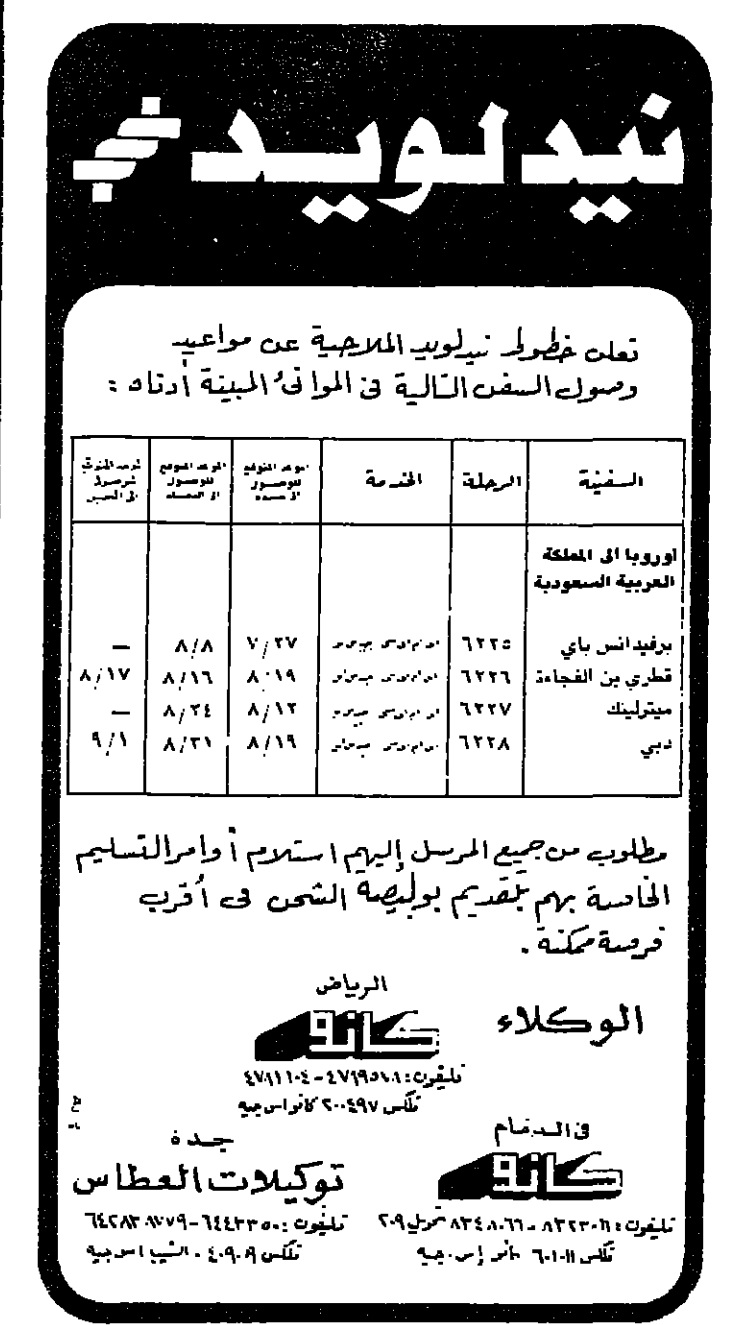 نيدلويد
تعلن خطوط نيدلويد الملاحية عن مواعيد
وصول السفن التالية في الموانئ المبينة أدناه :
السفينة الرحلة الخدمة الموعد المتوقع للوصول الى جدة الموعد المتوقع للوصول الى الدمام الموعد المتوقع للوصول الى الجبيل
اوروبا الى المملكة
العربية السعودية
برفيدانس باي ٦٢٢٥ ٧/٢٧ ٨/٨ —
قطري بن الفجاءة ٦٢٢٦ ٨٠١٩ ٨/١٦ ٨/١٧
ميترلينك ٦٢٢٧ ٨/١٢ ٨/٢٤ —
دبي ٦٢٢٨ ٨/١٩ ٨/٣١ ٩/١
مطلوب من جميع المرسل إليهم استلام أوامر التسليم
الخاصة بهم بتقديم بوليصة الشحن في أقرب
فرصة ممكنة .
الوكلاء
الرياض
كانو
تليفون :
تلكس ٢٠٠٤٩٧ كانو اس جيه
في الدمام
كانو
تليفون : تحويل ٢٠٩
تلكس
جدة
توكيلات العطاس
تليفون :
تلكس